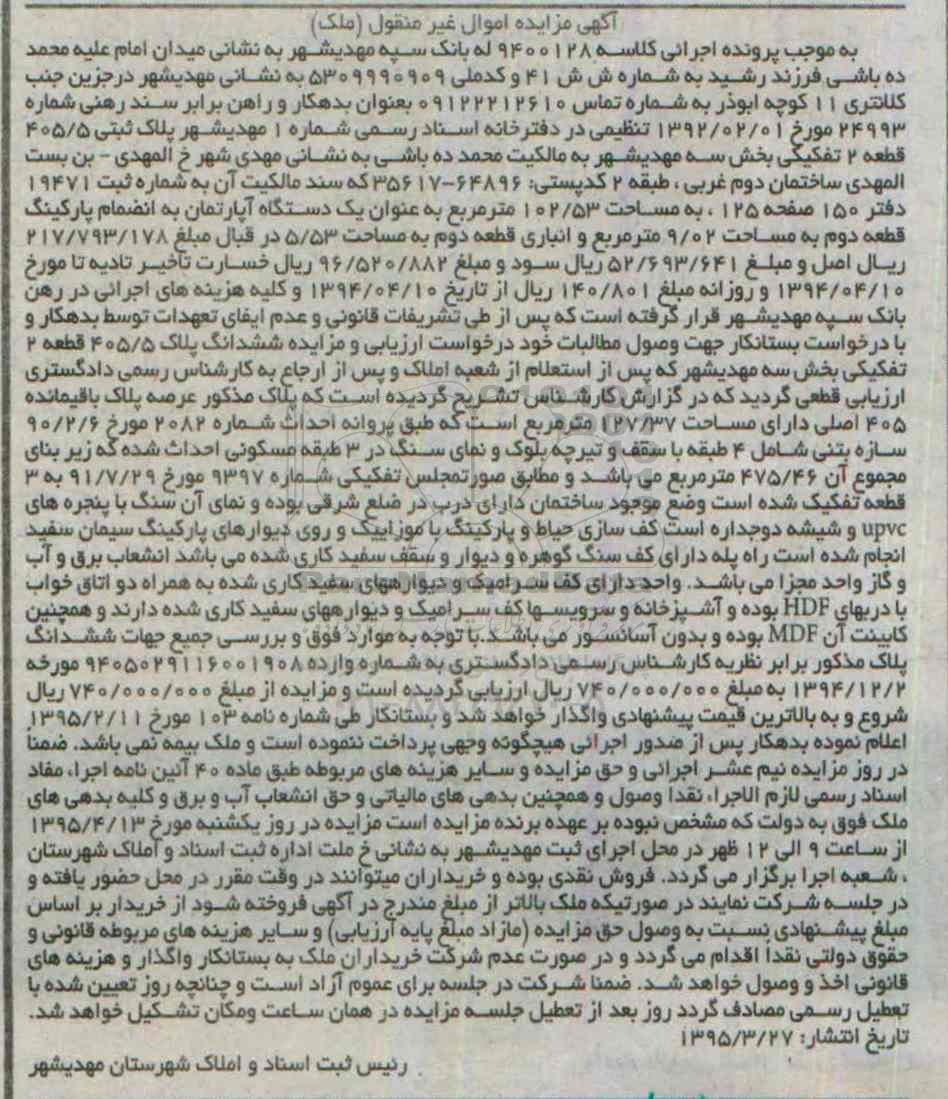 آگهی مزایده اموال غیر منقول (ملک)
به موجب پرونده اجرائی کلاسه ۹۴۰۰۱۲۸ له بانک سپه مهدیشهر به نشانی میدان امام علیه محمد
ده باشی فرزند رشید به شماره ش ش ۴۱ و کدملی ۵۳۰۹۹۹۰۹۰۹ به نشانی مهدیشهر درجزین جنب
کلانتری ۱۱ کوچه ابوذر به شماره تماس ۰۹۱۲۲۲۱۲۶۱۰ بعنوان بدهکار و راهن برابر سند رهنی شماره
۲۴۹۹۳ مورخ ۱۳۹۲/۰۲/۰۱ تنظیمی در دفترخانه اسناد رسمی شماره ۱ مهدیشهر پلاک ثبتی ۴۰۵/۵
قطعه ۲ تفکیکی بخش سه مهدیشهر به مالکیت محمد ده باشی به نشانی مهدی شهر خ المهدی - بن بست
المهدی ساختمان دوم غربی ، طبقه ۲ کدپستی: ۶۴۸۹۶-۳۵۶۱۷ که سند مالکیت آن به شماره ثبت ۱۹۴۷۱
دفتر ۱۵۰ صفحه ۱۲۵ ، به مساحت ۱۰۲/۵۳ مترمربع به عنوان یک دستگاه آپارتمان به انضمام پارکینگ
قطعه دوم به مساحت ۹/۰۲ مترمربع و انباری قطعه دوم به مساحت ۵/۵۳ در قبال مبلغ ۲۱۷/۷۹۳/۱۷۸
ریال اصل و مبلغ ۵۲/۶۹۳/۶۴۱ ریال سود و مبلغ ۹۶/۵۲۰/۸۸۲ ریال خسارت تأخیر تادیه تا مورخ
۱۳۹۴/۰۴/۱۰ و روزانه مبلغ ۱۴۰/۸۰۱ ریال از تاریخ ۱۳۹۴/۰۴/۱۰ و کلیه هزینه های اجرائی در رهن
بانک سپه مهدیشهر قرار گرفته است که پس از طی تشریفات قانونی و عدم ایفای تعهدات توسط بدهکار و
با درخواست بستانکار جهت وصول مطالبات خود درخواست ارزیابی و مزایده ششدانگ پلاک ۴۰۵/۵ قطعه ۲
تفکیکی بخش سه مهدیشهر که پس از استعلام از شعبه املاک و پس از ارجاع به کارشناس رسمی دادگستری
ارزیابی قطعی گردید که در گزارش کارشناس تشریح گردیده است که پلاک مذکور عرصه پلاک باقیمانده
۴۰۵ اصلی دارای مساحت ۱۲۷/۳۷ مترمربع است که طبق پروانه احداث شماره ۲۰۸۲ مورخ ۹۰/۲/۶
سازه بتنی شامل ۴ طبقه با سقف و تیرچه بلوک و نمای سنگ در ۳ طبقه مسکونی احداث شده که زیر بنای
مجموع آن ۴۷۵/۴۶ مترمربع می باشد و مطابق صورتمجلس تفکیکی شماره ۹۳۹۷ مورخ ۹۱/۷/۲۹ به ۳
قطعه تفکیک شده است وضع موجود ساختمان دارای درب در ضلع شرقی بوده و نمای آن سنگ با پنجره های
upvc و شیشه دوجداره است کف سازی حیاط و پارکینگ با موزاییک و روی دیوارهای پارکینگ سیمان سفید
انجام شده است راه پله دارای کف سنگ گوهره و دیوار و سقف سفید کاری شده می باشد انشعاب برق و آب
و گاز واحد مجزا می باشد. واحد دارای کف سرامیک و دیوارههای سفید کاری شده به همراه دو اتاق خواب
با دربهای HDF بوده و آشپزخانه و سرویسها کف سرامیک و دیوارههای سفید کاری شده دارند و همچنین
کابینت آن MDF بوده و بدون آسانسور می باشد.با توجه به موارد فوق و بررسی جمیع جهات ششدانگ
پلاک مذکور برابر نظریه کارشناس رسمی دادگستری به شماره وارده ۹۴۰۵۰۲۹۱۱۶۰۰۱۹۰۸ مورخه
۱۳۹۴/۱۲/۲ به مبلغ ۷۴۰/۰۰۰/۰۰۰ ریال ارزیابی گردیده است و مزایده از مبلغ ۷۴۰/۰۰۰/۰۰۰ ریال
شروع و به بالاترین قیمت پیشنهادی واگذار خواهد شد و بستانکار طی شماره نامه ۱۰۳ مورخ ۱۳۹۵/۲/۱۱
اعلام نموده بدهکار پس از صدور اجرائی هیچگونه وجهی پرداخت ننموده است و ملک بیمه نمی باشد. ضمنا
در روز مزایده نیم عشر اجرائی و حق مزایده و سایر هزینه های مربوطه طبق ماده ۴۰ آئین نامه اجراء مفاد
اسناد رسمی لازم الاجراء نقدا وصول و همچنین بدهی های مالیاتی و حق انشعاب آب و برق و کلیه بدهی های
ملک فوق به دولت که مشخص نبوده بر عهده برنده مزایده است مزایده در روز یکشنبه مورخ ۱۳۹۵/۴/۱۳
از ساعت ۹ الی ۱۲ ظهر در محل اجرای ثبت مهدیشهر به نشانی خ ملت اداره ثبت اسناد و املاک شهرستان
، شعبه اجرا برگزار می گردد. فروش نقدی بوده و خریداران میتوانند در وقت مقرر در محل حضور یافته و
در جلسه شرکت نمایند در صورتیکه ملک بالاتر از مبلغ مندرج در آگهی فروخته شود از خریدار بر اساس
مبلغ پیشنهادی نسبت به وصول حق مزایده (مازاد مبلغ پایه ارزیابی) و سایر هزینه های مربوطه قانونی و
حقوق دولتی نقدا اقدام می گردد و در صورت عدم شرکت خریداران ملک به بستانکار واگذار و هزینه های
قانونی اخذ و وصول خواهد شد. ضمنا شرکت در جلسه برای عموم آزاد است و چنانچه روز تعیین شده با
تعطیل رسمی مصادف گردد روز بعد از تعطیل جلسه مزایده در همان ساعت ومکان تشکیل خواهد شد.
تاریخ انتشار: ۱۳۹۵/۳/۲۷
رئیس ثبت اسناد و املاک شهرستان مهدیشهر